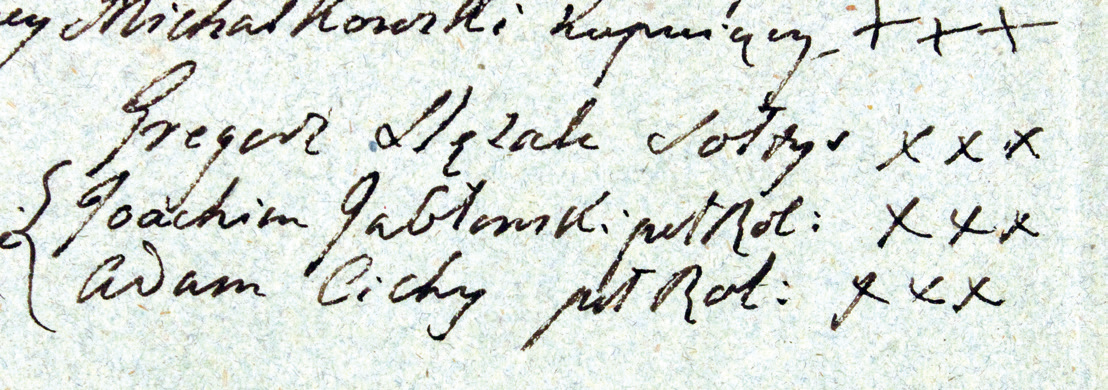 Michałkowski kupuiący +++
Gregorz Slęzak Sołtys xxx
Joachim Jabłonski pułRol: xxx
Adam Cichy puł Rol: xxx